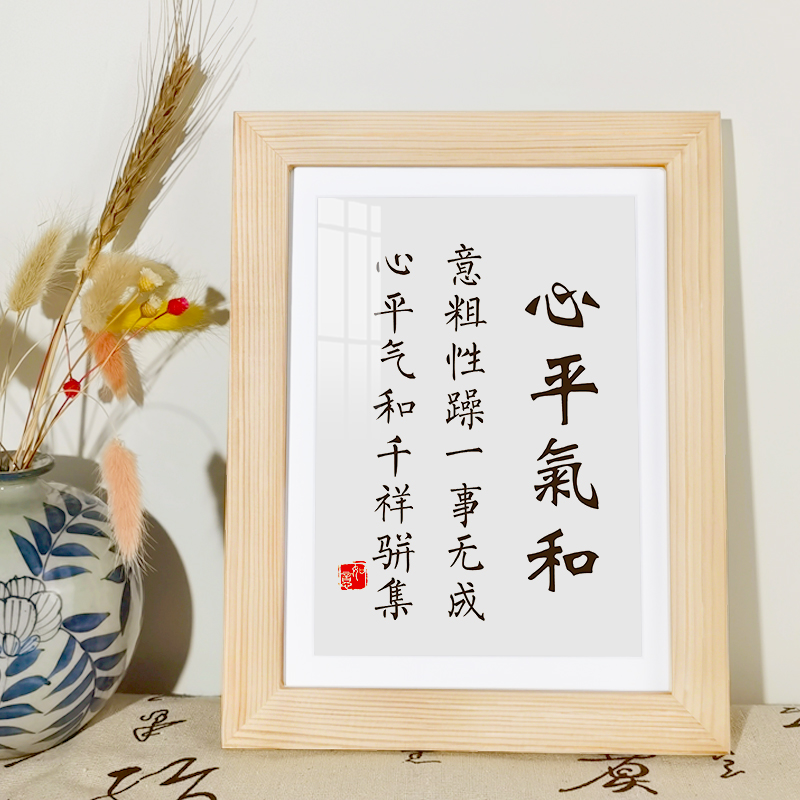 心平氣和
意粗性躁一事无成
心平气和千祥骈集
如意